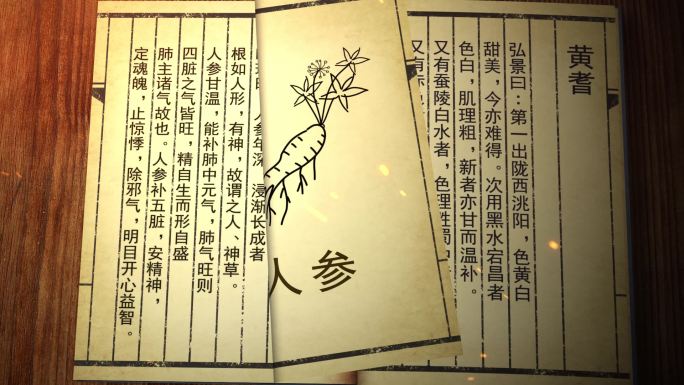 黄耆
弘景曰：第一出陇西洮阳，色黄白
甜美，今亦难得。次用黑水宕昌者
色白，肌理粗，新者亦甘而温补。
又有蚕陵白水者，色理
又有
人参
人参年深，浸渐长成者
根如人形，有神，故谓之人、神草。
人参甘温，能补肺中元气，肺气旺则
四脏之气皆旺，精自生而形自盛
肺主诸气故也。人参补五脏，安精神，
定魂魄，止惊悸，除邪气，明目开心益智。